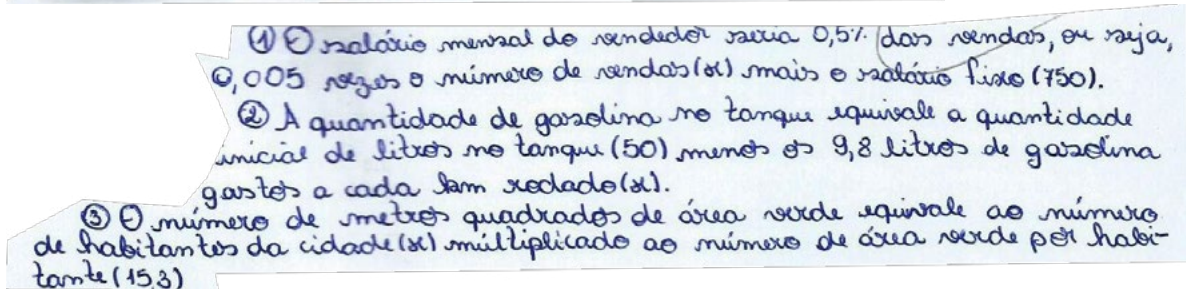 ① O salário mensal do vendedor seria 0,5% das vendas, ou seja,
0,005 vezes o número de vendas (x) mais o salário fixo (750).
② A quantidade de gasolina no tanque equivale a quantidade
inicial de litros no tanque (50) menos os 9,8 litros de gasolina
gastos a cada km rodado (x).
③ O número de metros quadrados de área verde equivale ao número
de habitantes da cidade (x) múltiplicado ao número de área verde por habi-
tante (153)